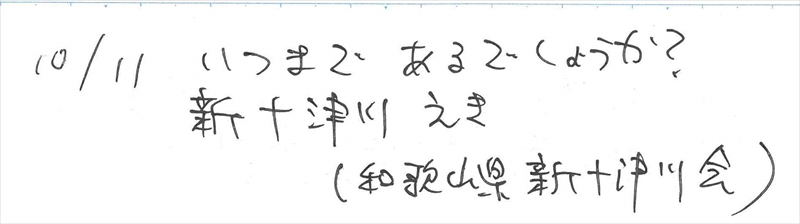 10/11 いつまで あるでしょうか?
新十津川 えき
(和歌山県 新十津川会)